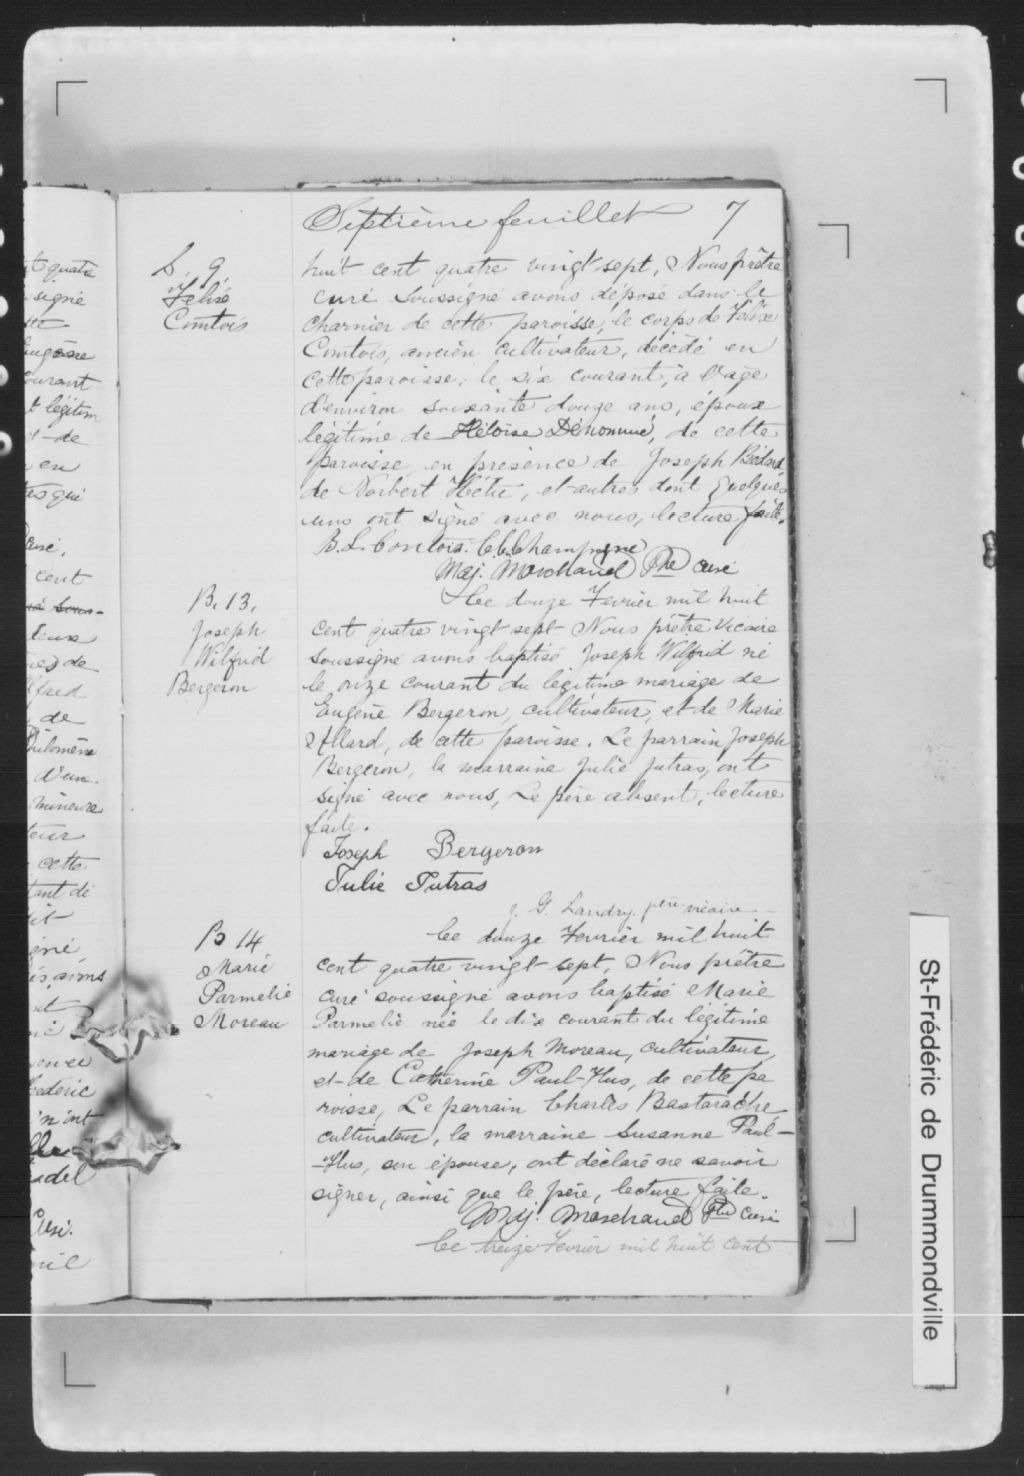 Septième feuillet 7
S. 9.
Félix
Comtois
huit cent quatre vingt sept, Nous prêtre
curé soussigné avons déposé dans le
charnier de cette paroisse, le corps de Félix
Comtois, ancien cultivateur, décédé en
cette paroisse, le six courant, à l'age
d'environ soixante douze ans, époux
légitime de Héloïse Dénommé, de cette
paroisse en présence de Joseph Bédard,
de Norbert Hétu, et autres dont quelques
uns ont signé avec nous, lecture faite.
B. L. Comtois. C. C. Champagne
Maj. Marchand Ptre curé
B. 13.
Joseph
Wilfrid
Bergeron
Ce douze Fevrier mil huit
cent quatre vingt sept Nous prêtre vicaire
soussigné avons baptisé Joseph Wilfrid né
le onze courant du légitime mariage de
Eugène Bergeron, cultivateur, et de Marie
Allard, de cette paroisse. Le parrain Joseph
Bergeron, la marraine Julie Jutras, ont
signé avec nous, Le père absent, lecture
faite.
Joseph Bergeron
Julie Jutras
J. G. Landry, ptre vicaire
B 14
Marie
Parmelie
Moreau
Ce douze Fevrier mil huit
cent quatre vingt sept, Nous prêtre
curé soussigné avons baptisé Marie
Parmelie née le dix courant du légitime
mariage de Joseph Moreau, cultivateur,
et de Catherine Paul-Hus, de cette pa
roisse, Le parrain Charles Bastarache
cultivateur, la marraine Susanne Paul-
-Hus, son épouse, ont déclaré ne savoir
signer, ainsi que le père, lecture faite.
Maj. Marchand Ptre Curé
Ce treize Fevrier mil huit cent
St-Frédéric de Drummondville